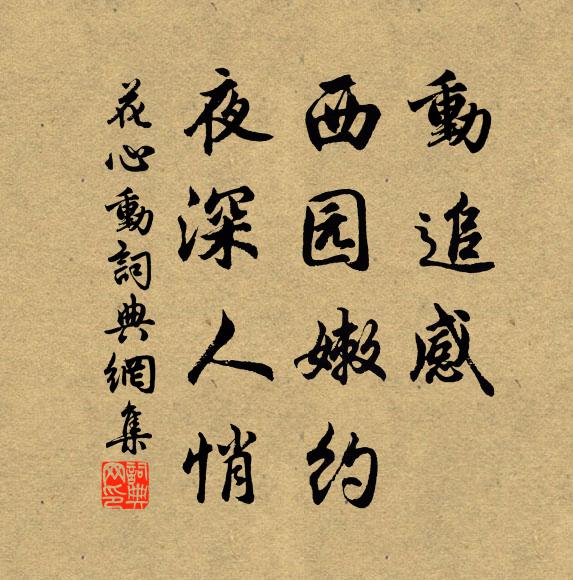 動追感
西园嫩约
夜深人悄
花心動詞典網集
詞典网印